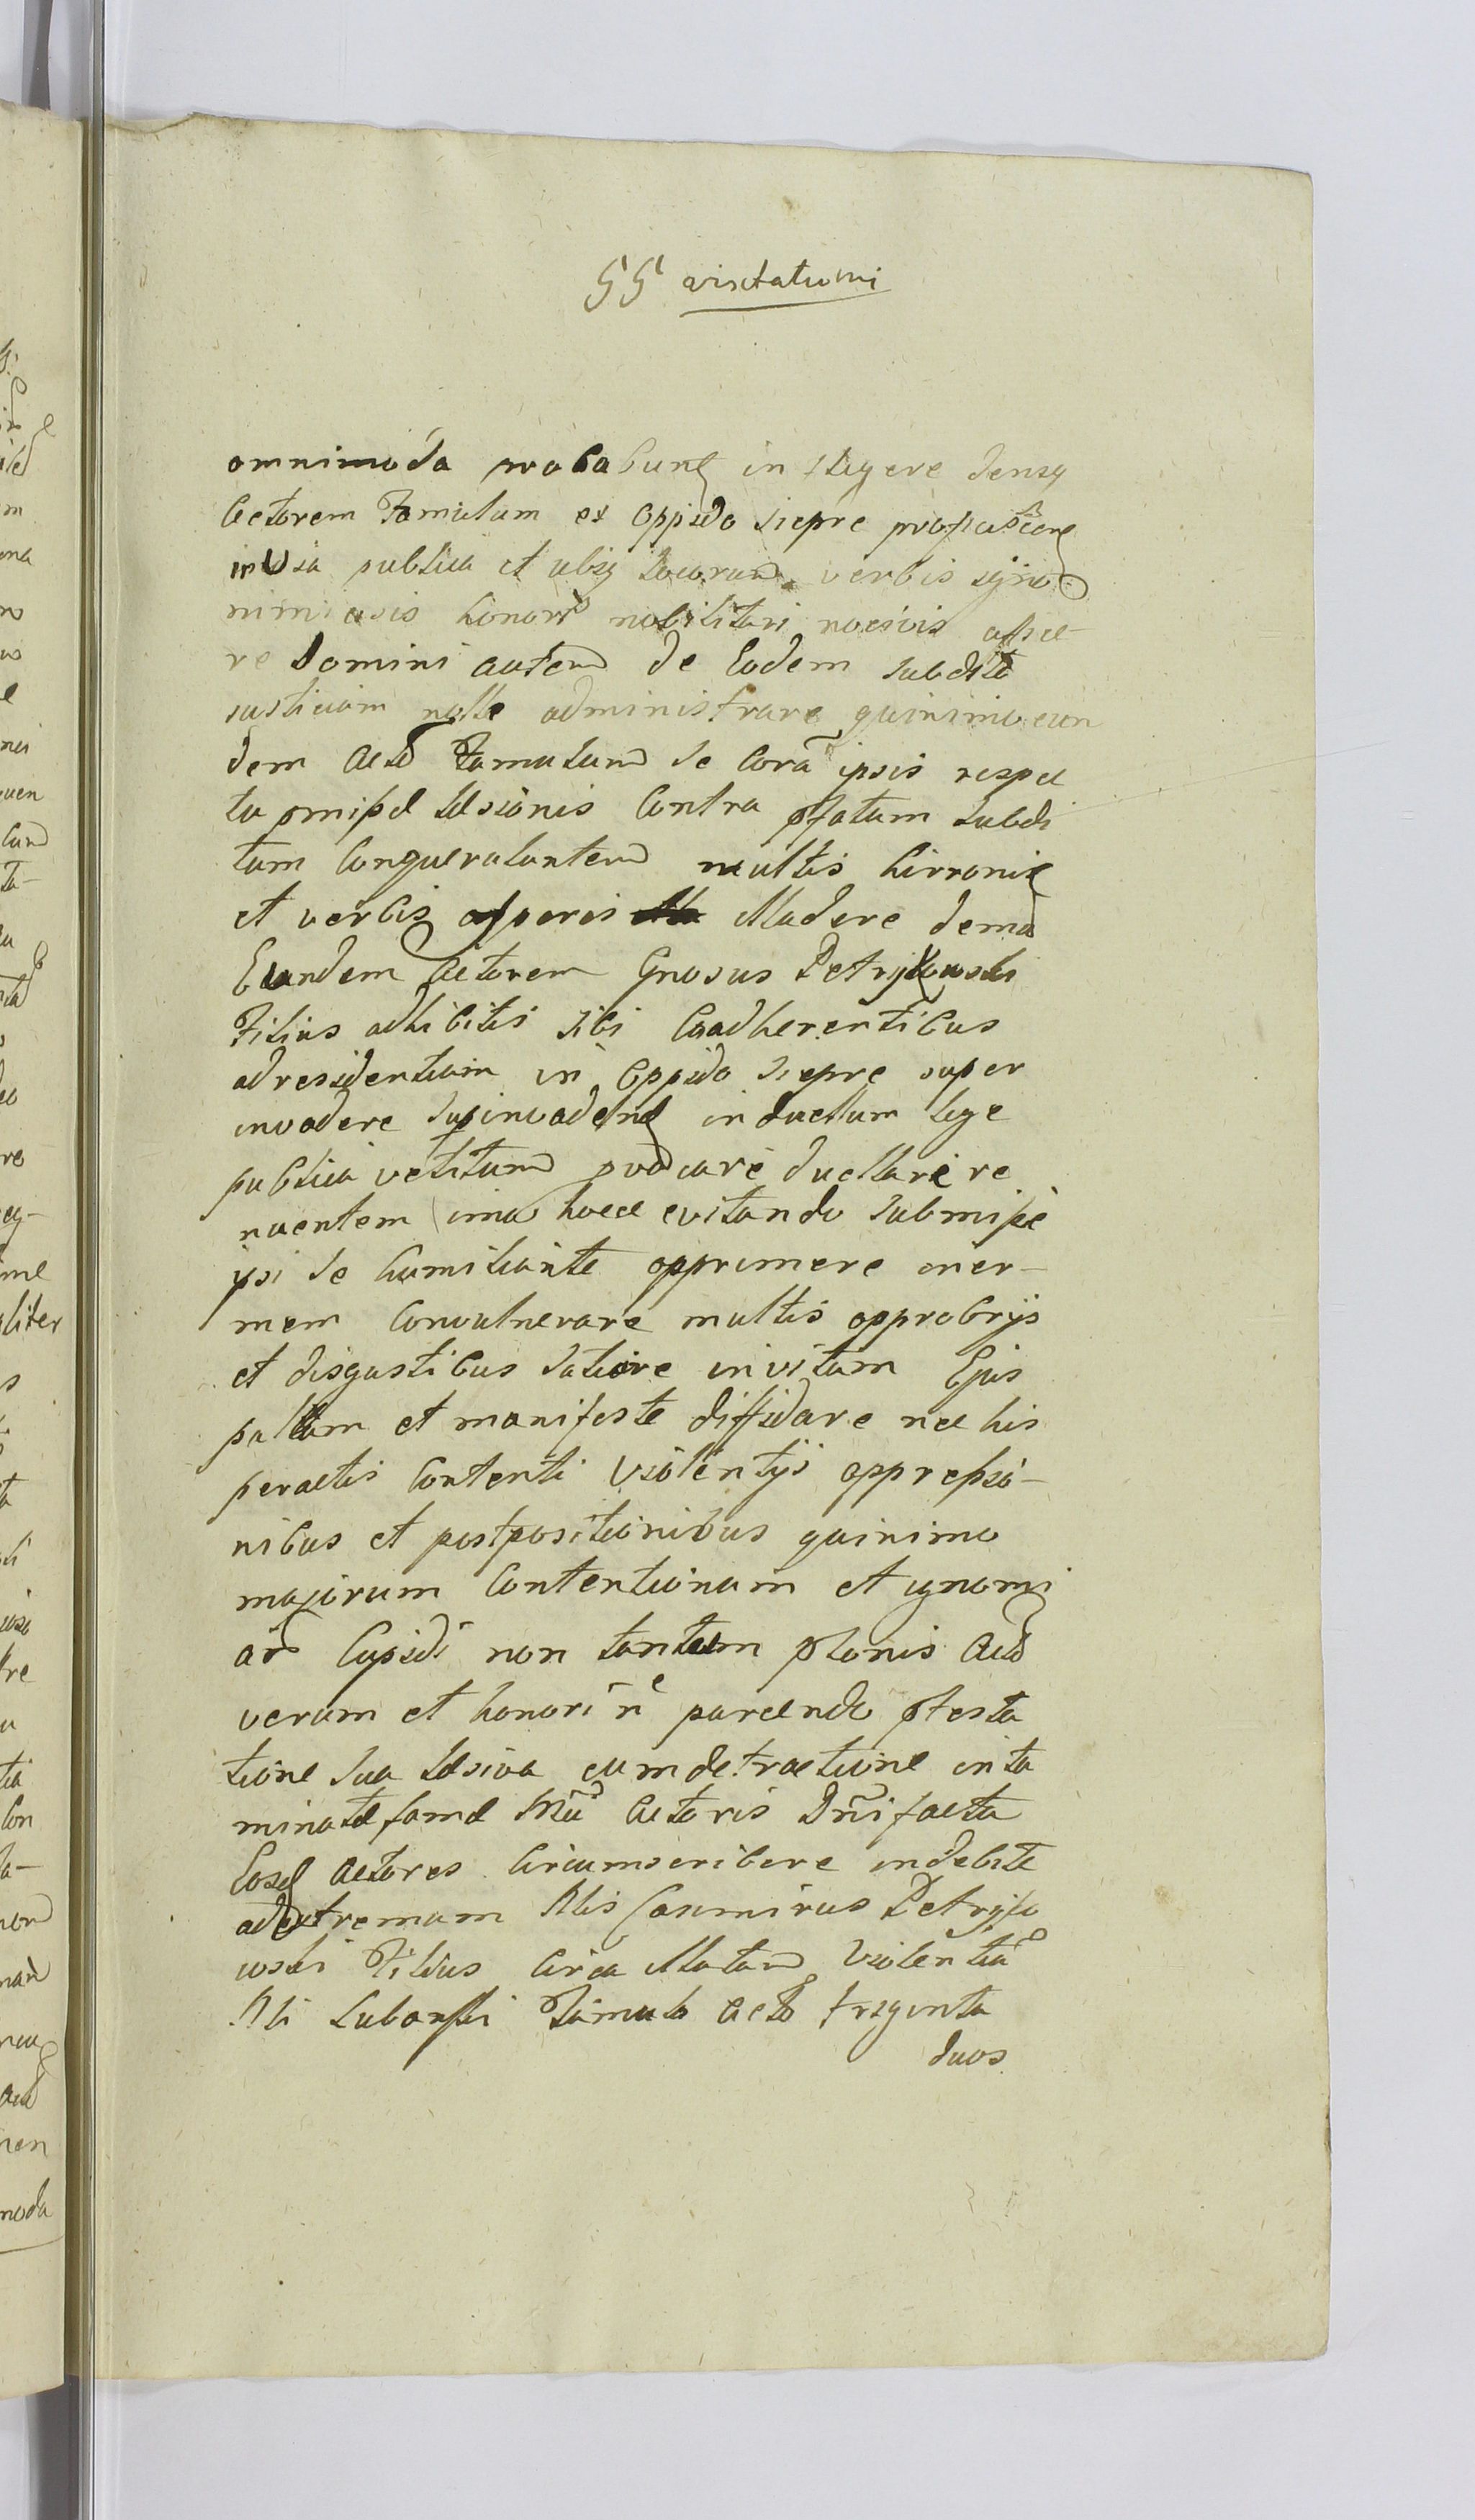 §§ aviset atumi
omnimoda probabunt instigere denszq
Actorem Famulum ex Oppido Siepre proficiscen
in Via publica et ubiq locorum verbis igno
miniosis honori nobilitari nocivis affice-
re Domini autem de Eodem Subdito
iustitiam nolle administrare quinimo eun
dem Acto Famulum se Corã ipsis respec
tu pmissae laesionis Contra pfatum Subdi
tum Conquerulantem multis hirronis
et verbis asperis illudere demũ
Eundem Actorem Gnosus Petrykowski
Filius adhibitis sibi Coadherentibus
ad residentiam in Oppido Siepre super
invadere Supinvadend in duellum lege
publica vetitum pvocare duellare re
nuentem imo haec evitando Submisse
ipsi se humiliante opprimere iner-
mem Convulnerare multis opprobrijs
et disgustibus Satiare in vitam Ejus
pallam et manifeste diffidare nec his
peractis Contenti Violentijs oppressio-
nibus et postpositionibus quinimo
majorum Contentionum et ignomi
ar Cupidi non tantum psonis Acto
verum et honori ñ parcendo ptesta
tione Sua laesiva cum detractione inta
minatae famae Actoris Dñi facta
Eosd Actores Circumscribere indebite
ad extremum Nlis Casimirus Petryko
wski Filius Circa illatam Violentiã
Nli Lubanski Famulo Acto triginta
duos